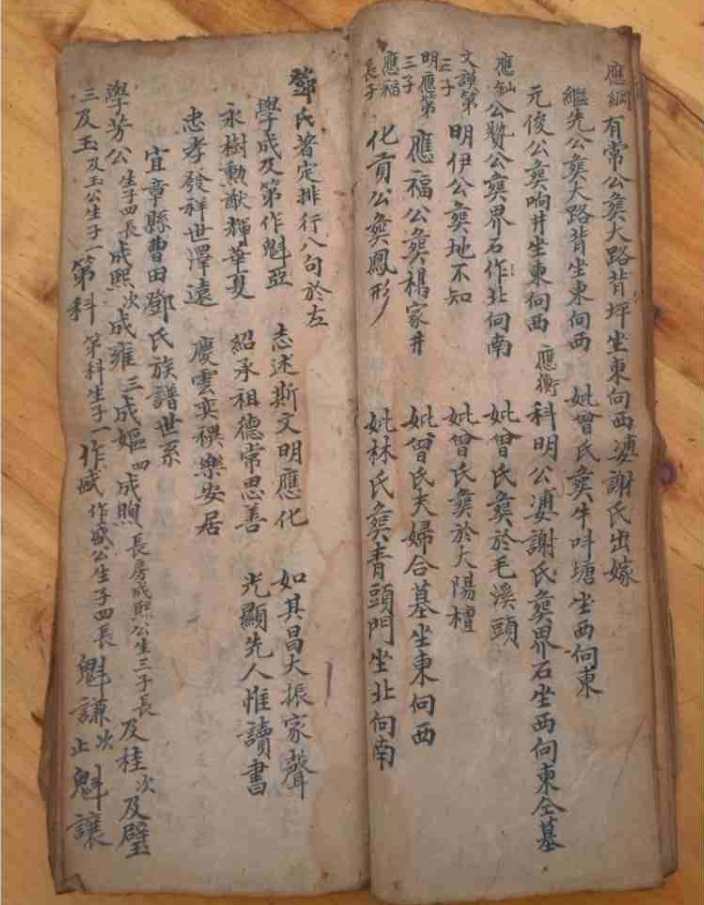 應綱 有常公葬大路背坪坐東向西 婆謝氏出嫁
繼先公葬大路背坐東向西 妣曾氏葬牛吽塘坐西向東
元俊公葬响井坐東向西 應衡 科明公婆謝氏葬界石坐西向東仝墓
應仙 公贊公葬界石作北向南 妣曾氏葬於毛溪頭
文謨第三子 明伊公葬地不知 妣曾氏葬於大陽壇
明應第三子 應福公葬楊家井 妣曾氏夫婦合墓坐東向西
應福長子 化貢公葬鳳形 妣林氏葬青頭門坐北向南
鄧氏著定排行八句於左
學成及第作魁亞 志述斯文明應化 如其昌大振家聲
永樹勳猷輝華夏 紹承祖德常思善 光顯先人惟讀書
忠孝發祥世澤遠 慶雲奕禩樂安居
宜章縣曹田鄧氏族譜世系
學芳公生子四長成熙次成雍三成嫗四成煦長房成熙公生三子長及桂次及璧
三及玉及玉公生子一第科第科生子一作盛作盛公生子四長魁謙次止魁讓